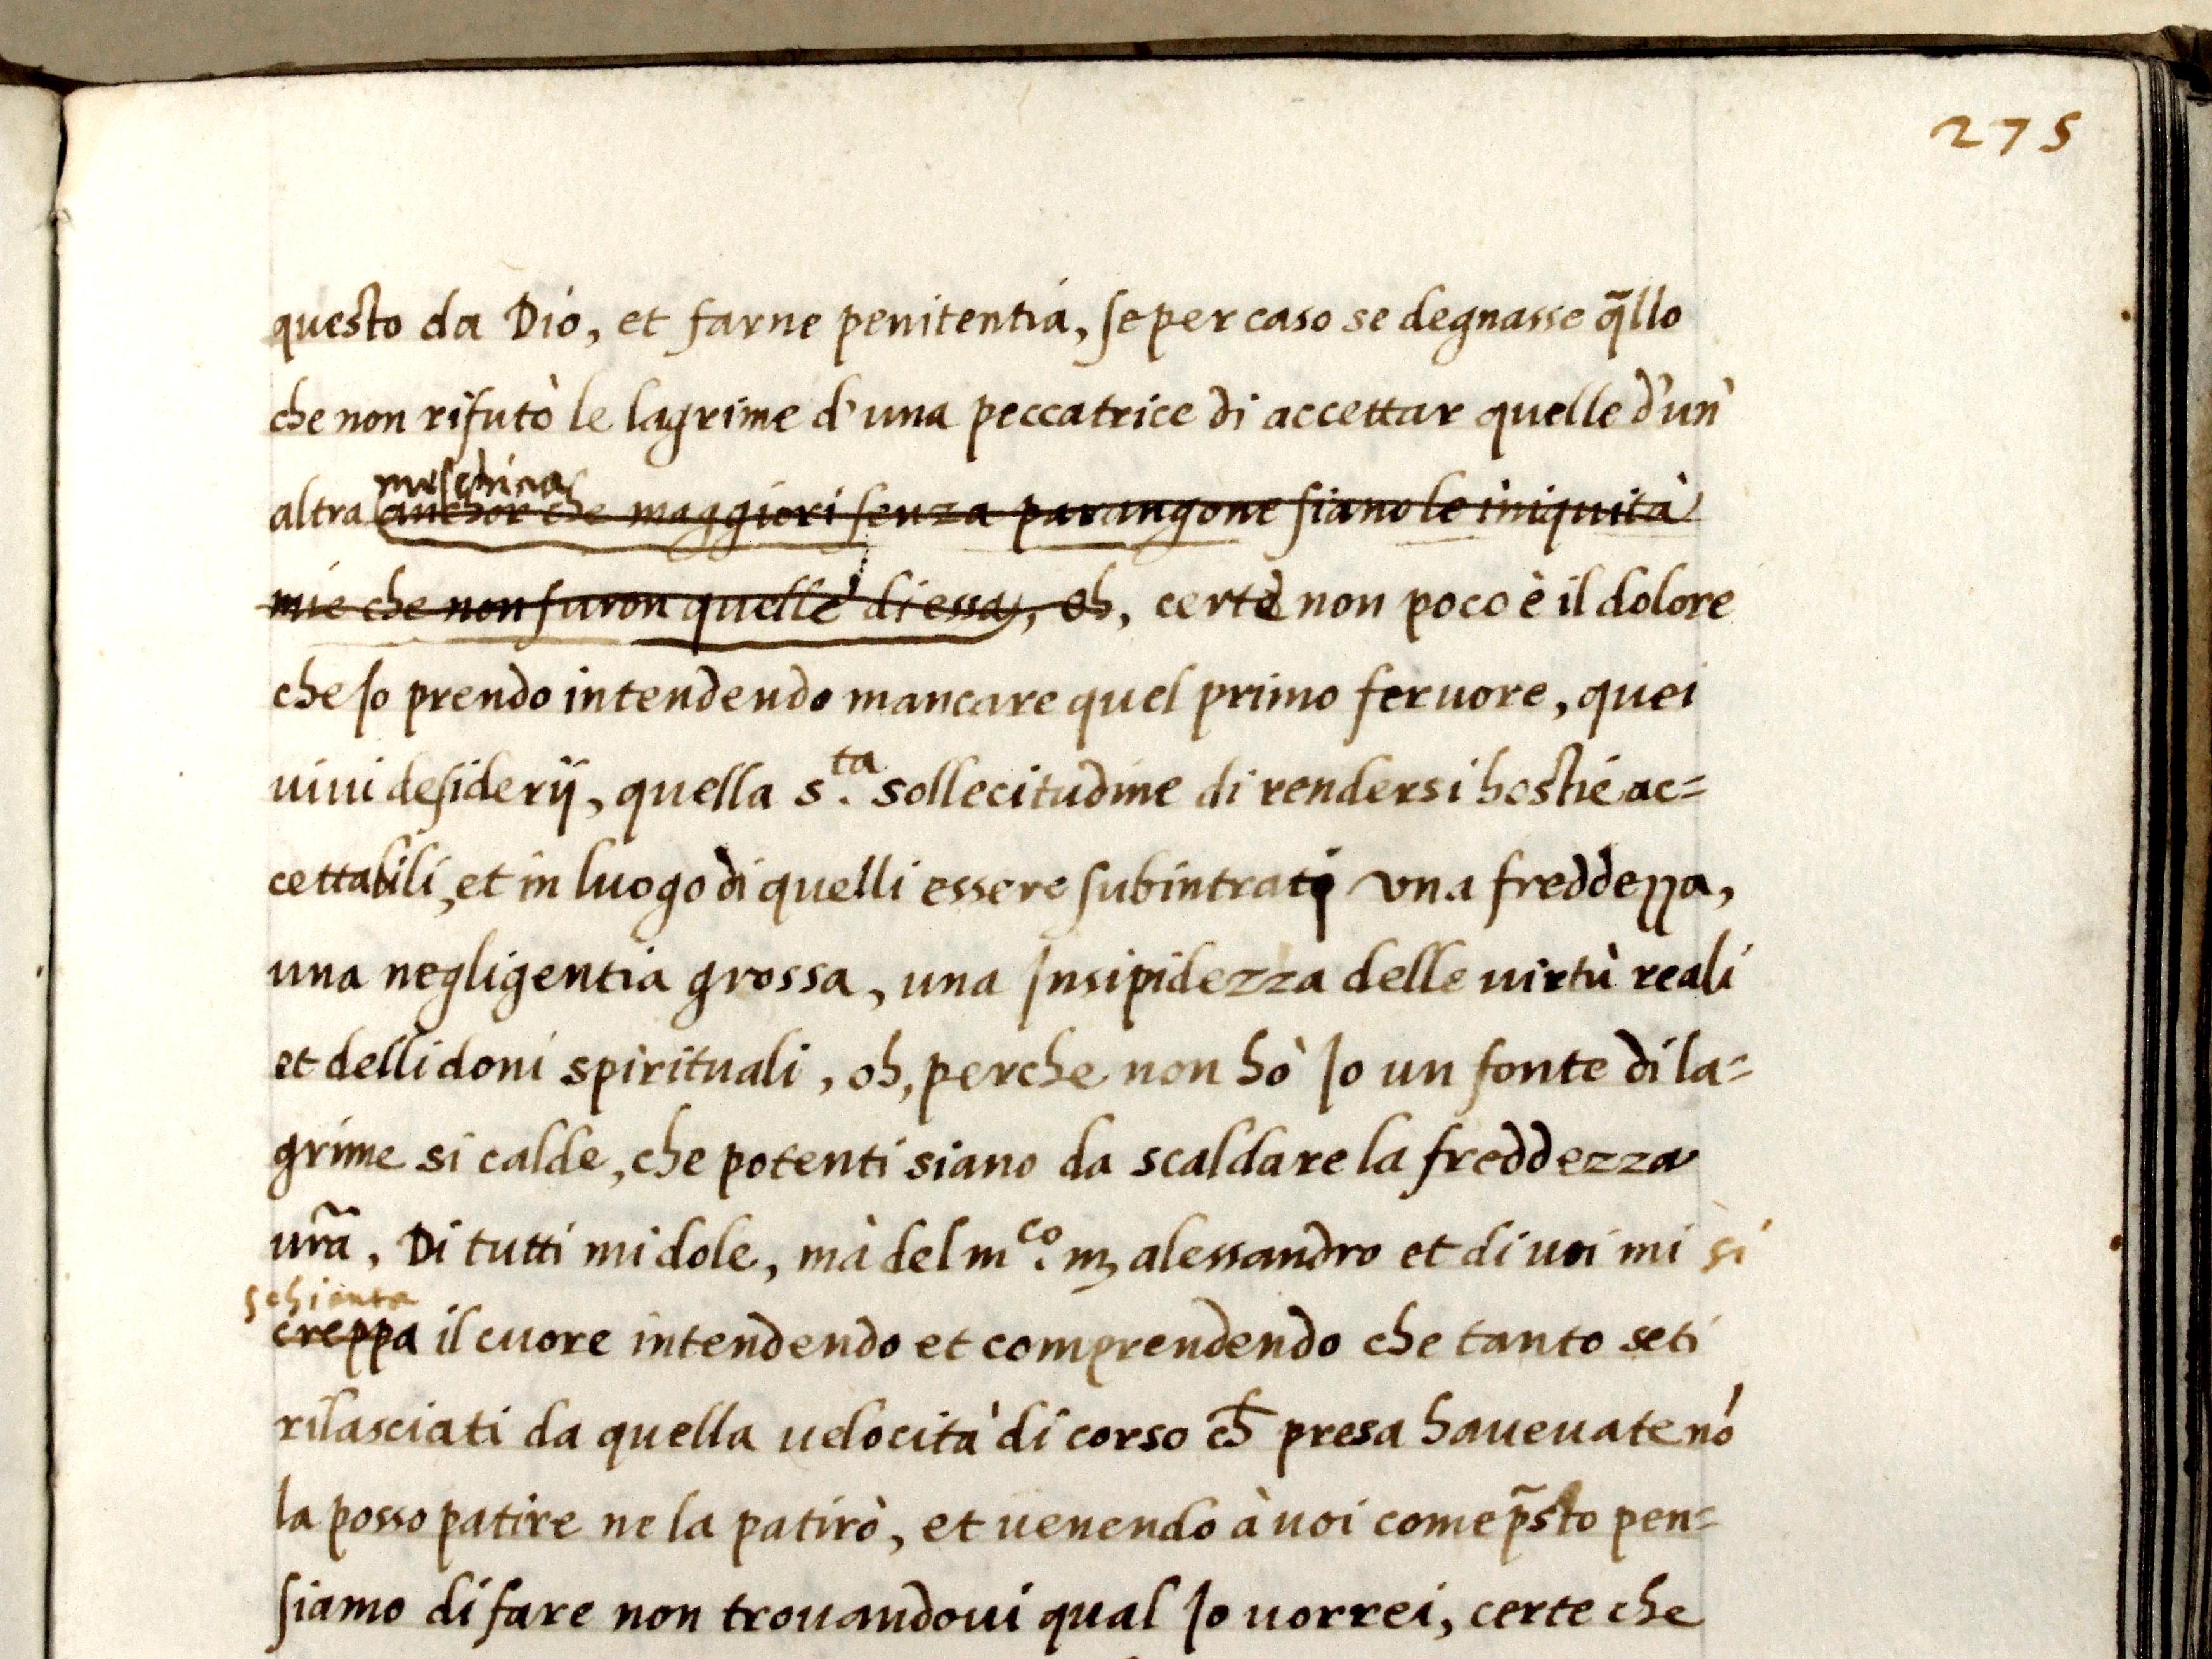 275
questo da Dio, et farne penitentia, se per caso se degnasse q̃llo
che non rifutò le lagrime d'una peccatrice di accettar quelle d'un'
meschina
altra anchor che maggiori senza parangone siano le iniquità
mie che non furon quelle di essa, oh, certo non poco è il dolore
che Io prendo intendendo mancare quel primo feruore, quei
uiui desiderij, quella s.ta sollecitudine di rendersi hostie ac=
cettabili, et in luogo di quelli essere subintrati una freddezza,
una negligentia grossa, una Insipidezza delle uirtù reali
et delli doni spirituali, oh, perche non hò Io un fonte di la=
grime si calde, che potenti siano da scaldare la freddezza
ur̃a, Di tutti mi dole, mà del m.co m₃ alessandro et di uoi mi si
schianta
creppa il cuore intendendo et comprendendo che tanto seti
rilasciati da quella uelocità di corso ch̄ presa haueuate nó
la posso patire ne la patirò, et uenendo à uoi come p̃sto pen=
siamo di fare non trouandoui qual Io uorrei, certe che